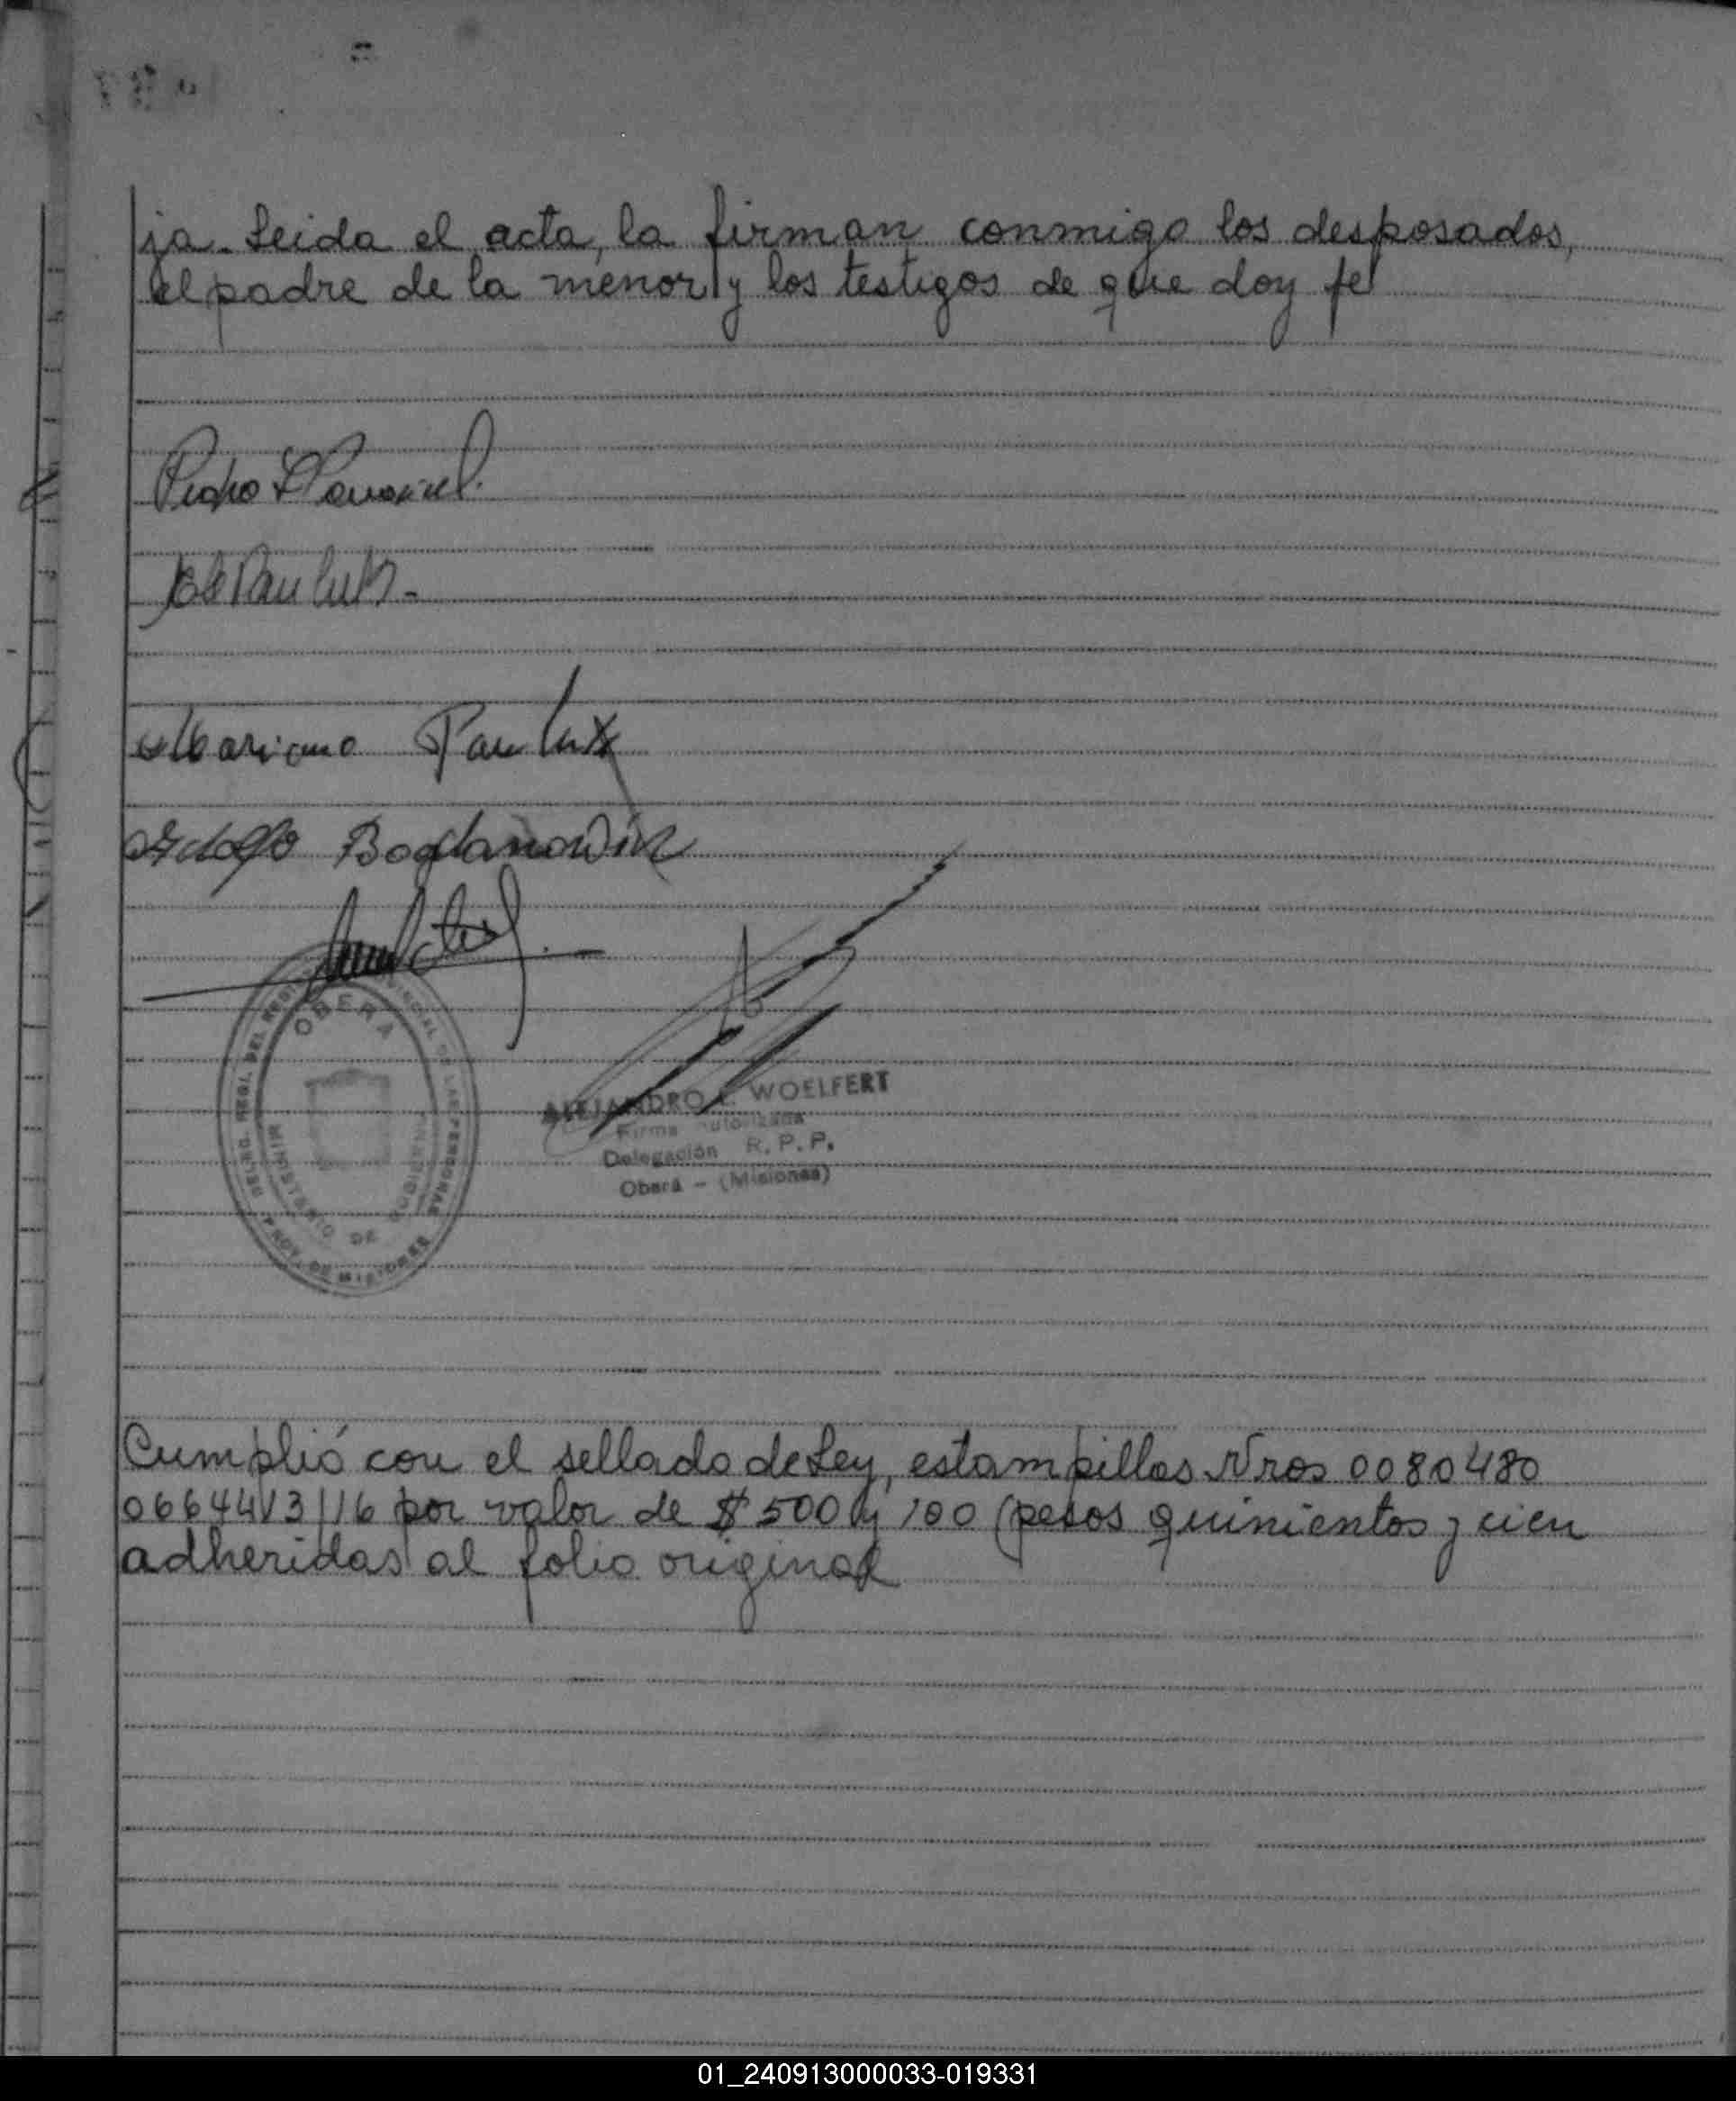 ja. Leida el acta, la firman conmigo los desposados,
el padre de la menor, y los testigos de que doy fe
Pedro
Paulux
Mariano Paulux
Adolfo Bogdanowicz
OBERA
DELEG. REGL. DEL REGISTRO PROVINCIAL DE LAS PERSONAS
MINISTERIO DE GOBIERNO
PROV. DE MISIONES
ALEJANDRO WOELFERT
Firma autorizada
Delegación R. P. P.
Oberá - (Misiones)
Cumplió con el sellado de Ley, estampillas Nros 0080480
0664413/16 por valor de $ 500 y 100 (pesos quinientos y cien
adheridas al folio original
01_240913000033-019331